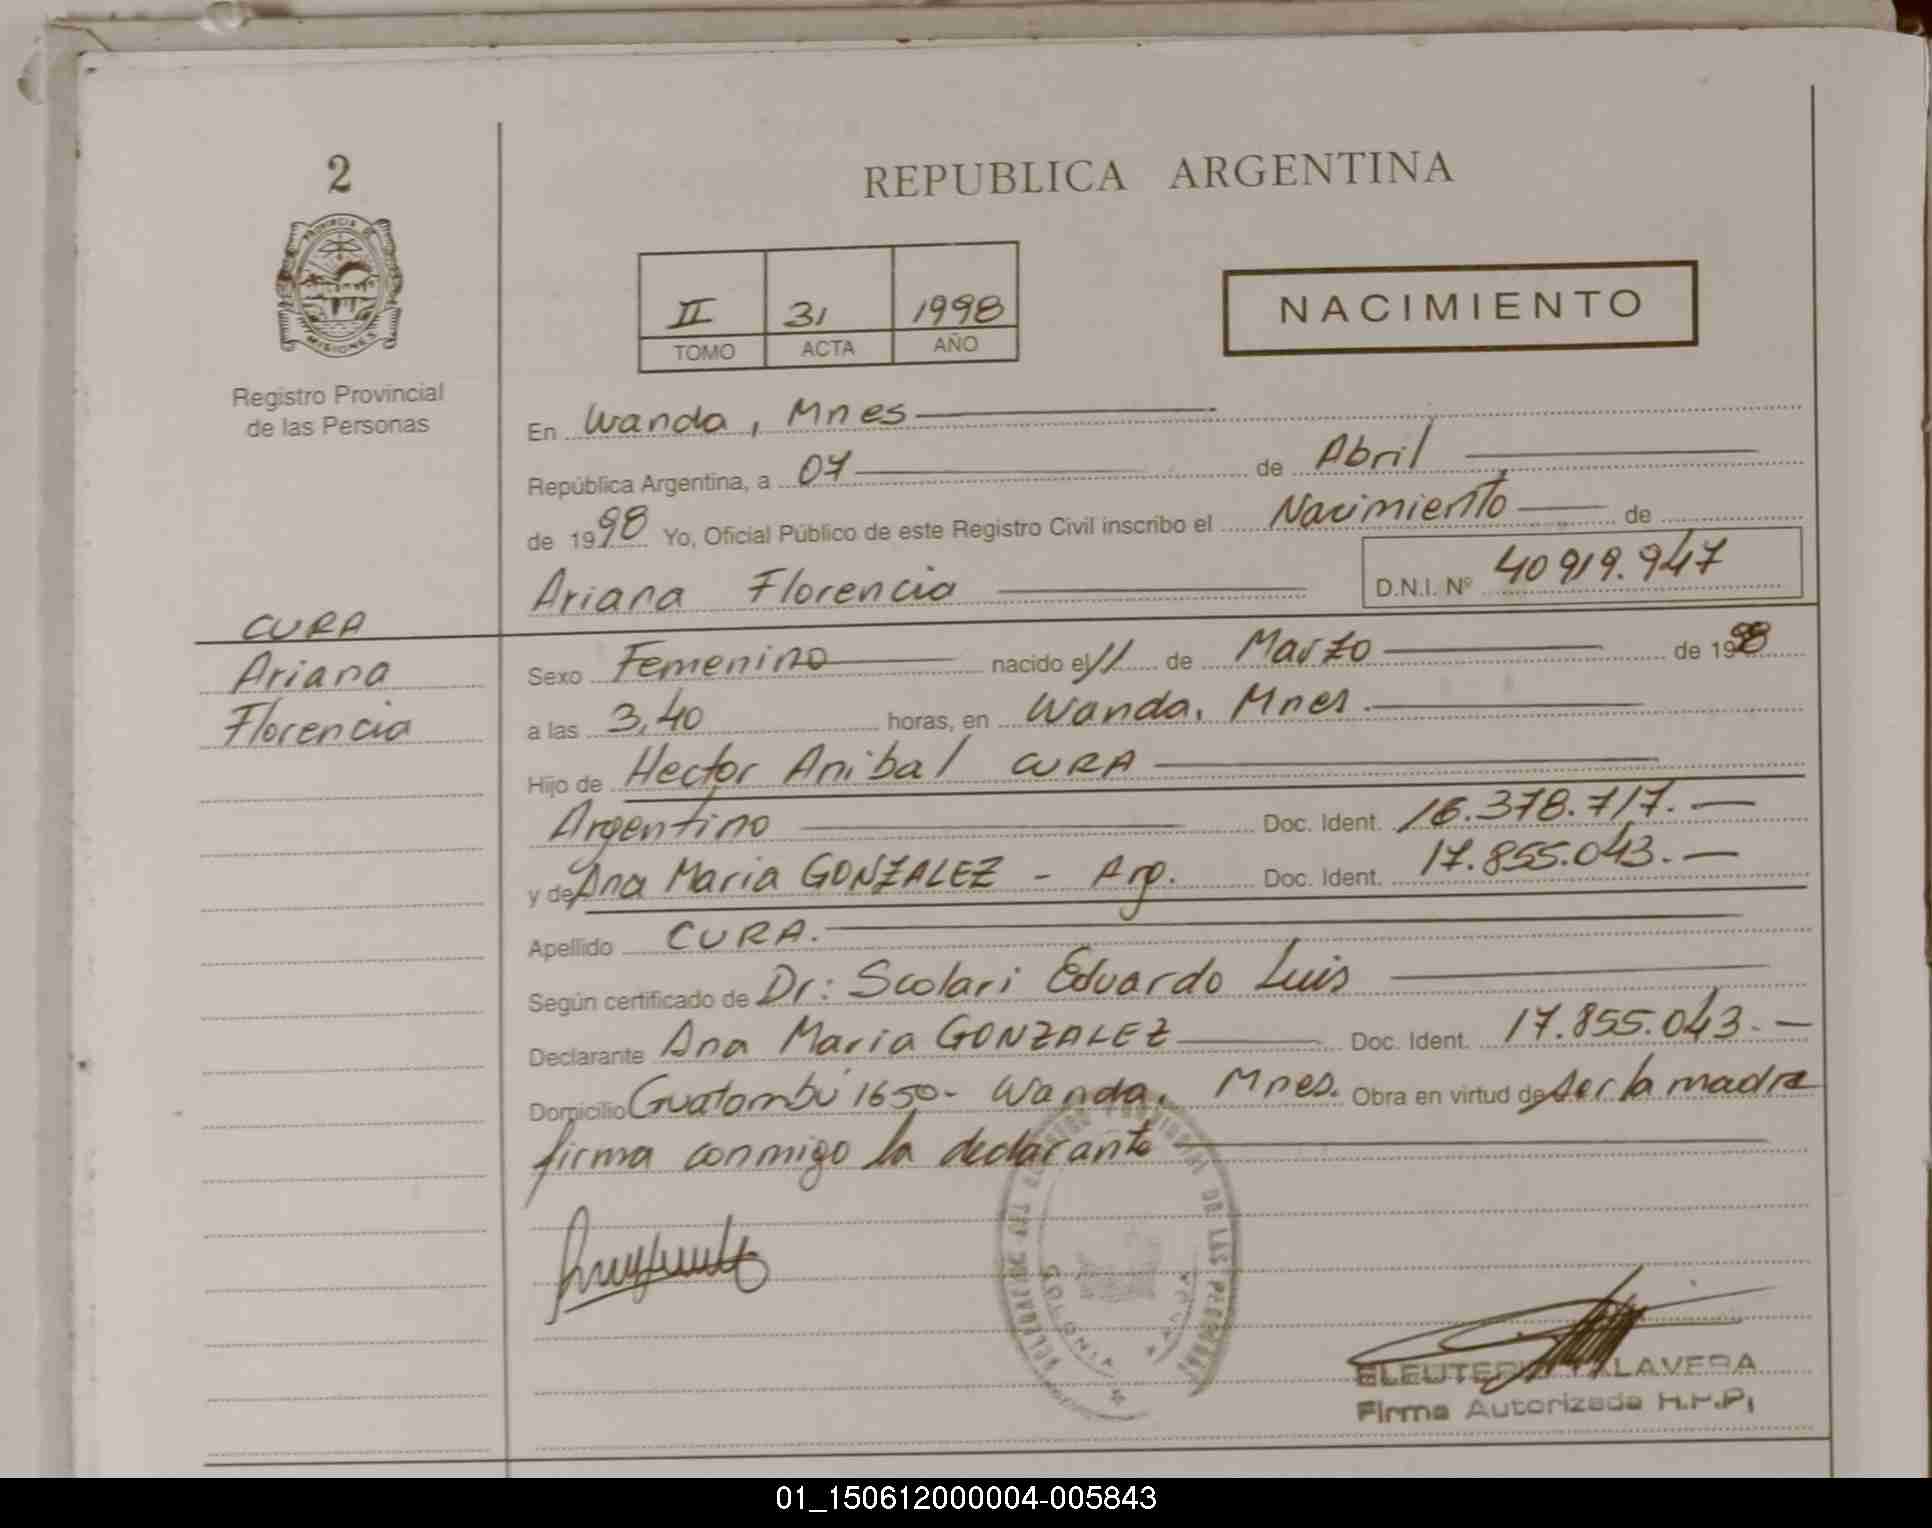 2
REPUBLICA ARGENTINA
PROVINCIA DE
MISIONES
Registro Provincial
de las Personas
II 31 1998
TOMO ACTA AÑO
NACIMIENTO
En Wanda, Mnes
República Argentina, a 07 de Abril
de 1998 Yo, Oficial Público de este Registro Civil inscribo el Nacimiento de
Ariana Florencia D.N.I. Nº 40919.947
CURA
Ariana
Florencia
Sexo Femenino nacido el 11 de Marzo de 1998
a las 3,40 horas, en Wanda, Mnes.
Hijo de Hector Anibal CURA
Argentino Doc. Ident. 16.378.717.
y de Ana Maria GONZALEZ - Arg. Doc. Ident. 17.855.043.
Apellido CURA.
Según certificado de Dr: Scolari Eduardo Luis
Declarante Ana Maria GONZALEZ Doc. Ident. 17.855.043.
Domicilio Guatambú 1650- Wanda, Mnes. Obra en virtud de ser la madre
firma conmigo la declarante
DE LAS PERSONAS
COLONIA WANDA
ELEUTERIO TALAVERA
Firma Autorizada H.P.P.
01_150612000004-005843